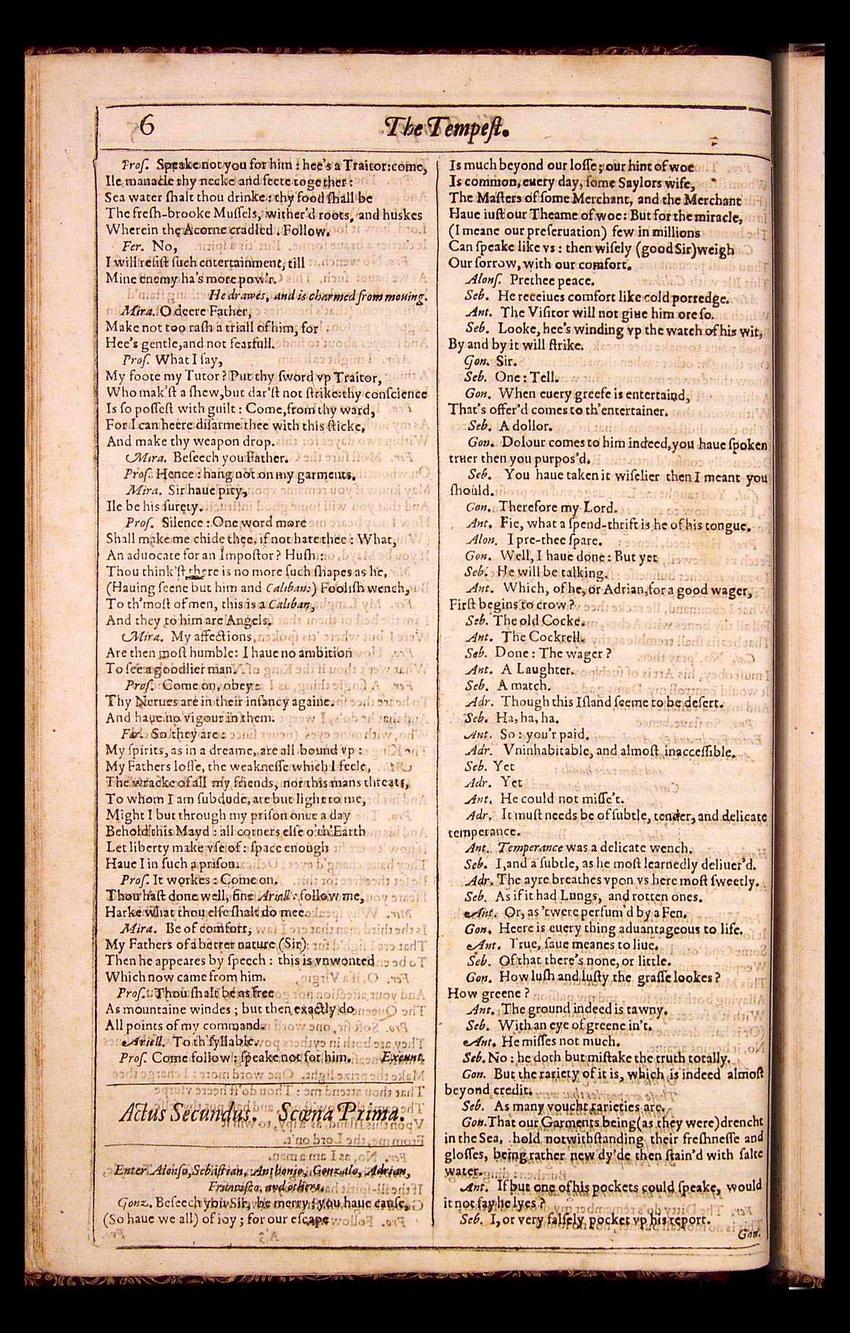 6
The Tempest.
Pros. Speake not you for him: hee's a Traitor: come,
Ile manacle thy necke and feete together:
Sea water shalt thou drinke: thy food shall be
The fresh-brooke Mussels, wither'd roots, and huskes
Wherein the Acorne cradled. Follow.
Fer. No,
I will resist such entertainment, till
Mine enemy ha's more pow'r.
He drawes, and is charmed from mouing.
Mira. O deere Father,
Make not too rash a triall of him, for
Hee's gentle, and not fearfull.
Pros. What I say,
My foote my Tutor? Put thy sword vp Traitor,
Who mak'st a shew, but dar'st not strike: thy conscience
Is so possest with guilt: Come, from thy ward,
For I can heere disarme thee with this sticke,
And make thy weapon drop.
Mira. Beseech you Father.
Pros. Hence: hang not on my garments.
Mira. Sir haue pity,
Ile be his surety.
Pros. Silence: One word more
Shall make me chide thee, if not hate thee: What,
An aduocate for an Impostor? Hush:
Thou think'st there is no more such shapes as he,
(Hauing seene but him and Caliban:) Foolish wench,
To th'most of men, this is a Caliban,
And they to him are Angels.
Mira. My affections,
Are then most humble: I haue no ambition
To see a goodlier man.
Pros. Come on, obey:
Thy Nerues are in their infancy againe.
And haue no vigour in them.
Fer. So they are:
My spirits, as in a dreame, are all bound vp:
My Fathers losse, the weaknesse which I feele,
The wracke of all my friends, nor this mans threats,
To whom I am subdude, are but light to me,
Might I but through my prison once a day
Behold this Mayd: all corners else o'th'Earth
Let liberty make vse of: space enough
Haue I in such a prison.
Pros. It workes: Come on.
Thou hast done well, fine Ariell: follow me,
Harke what thou else shalt do mee.
Mira. Be of comfort,
My Fathers of a better nature (Sir)
Then he appeares by speech: this is vnwonted
Which now came from him.
Pros. Thou shalt be as free
As mountaine windes; but then exactly do
All points of my command.
Ariell. To th'syllable.
Pros. Come follow: speake not for him. Exeunt.
Actus Secundus. Scœna Prima.
Enter Alonso, Sebastian, Anthonio, Gonzalo, Adrian,
Francisco, and others.
Gonz. Beseech you Sir, be merry; you haue cause,
(So haue we all) of ioy; for our escape
Is much beyond our losse; our hint of woe
Is common, euery day, some Saylors wife,
The Masters of some Merchant, and the Merchant
Haue iust our Theame of woe: But for the miracle,
(I meane our preseruation) few in millions
Can speake like vs: then wisely (good Sir) weigh
Our sorrow, with our comfort.
Alons. Prethee peace.
Seb. He receiues comfort like cold porredge.
Ant. The Visitor will not giue him ore so.
Seb. Looke, hee's winding vp the watch of his wit,
By and by it will strike.
Gon. Sir.
Seb. One: Tell.
Gon. When euery greefe is entertaind,
That's offer'd comes to th'entertainer.
Seb. A dollor.
Gon. Dolour comes to him indeed, you haue spoken
truer then you purpos'd.
Seb. You haue taken it wiselier then I meant you
should.
Gon. Therefore my Lord.
Ant. Fie, what a spend-thrift is he of his tongue.
Alon. I pre-thee spare.
Gon. Well, I haue done: But yet
Seb. He will be talking.
Ant. Which, of he, or Adrian, for a good wager,
First begins to crow?
Seb. The old Cocke.
Ant. The Cockrell.
Seb. Done: The wager?
Ant. A Laughter.
Seb. A match.
Adr. Though this Island seeme to be desert.
Seb. Ha, ha, ha.
Ant. So: you'r paid.
Adr. Vninhabitable, and almost inaccessible.
Seb. Yet
Adr. Yet
Ant. He could not misse't.
Adr. It must needs be of subtle, tender, and delicate
temperance.
Ant. Temperance was a delicate wench.
Seb. I, and a subtle, as he most learnedly deliuer'd.
Adr. The ayre breathes vpon vs here most sweetly.
Seb. As if it had Lungs, and rotten ones.
Ant. Or, as 'twere perfum'd by a Fen.
Gon. Heere is euery thing aduantageous to life.
Ant. True, saue meanes to liue.
Seb. Of that there's none, or little.
Gon. How lush and lusty the grasse lookes?
How greene?
Ant. The ground indeed is tawny.
Seb. With an eye of greene in't.
Ant. He misses not much.
Seb. No: he doth but mistake the truth totally.
Gon. But the rariety of it is, which is indeed almost
beyond credit.
Seb. As many voucht rarieties are.
Gon. That our Garments being (as they were) drencht
in the Sea, hold notwithstanding their freshnesse and
glosses, being rather new dy'de then stain'd with salte
water.
Ant. If but one of his pockets could speake, would
it not say he lyes?
Seb. I, or very falsely pocket vp his report.
Gon.